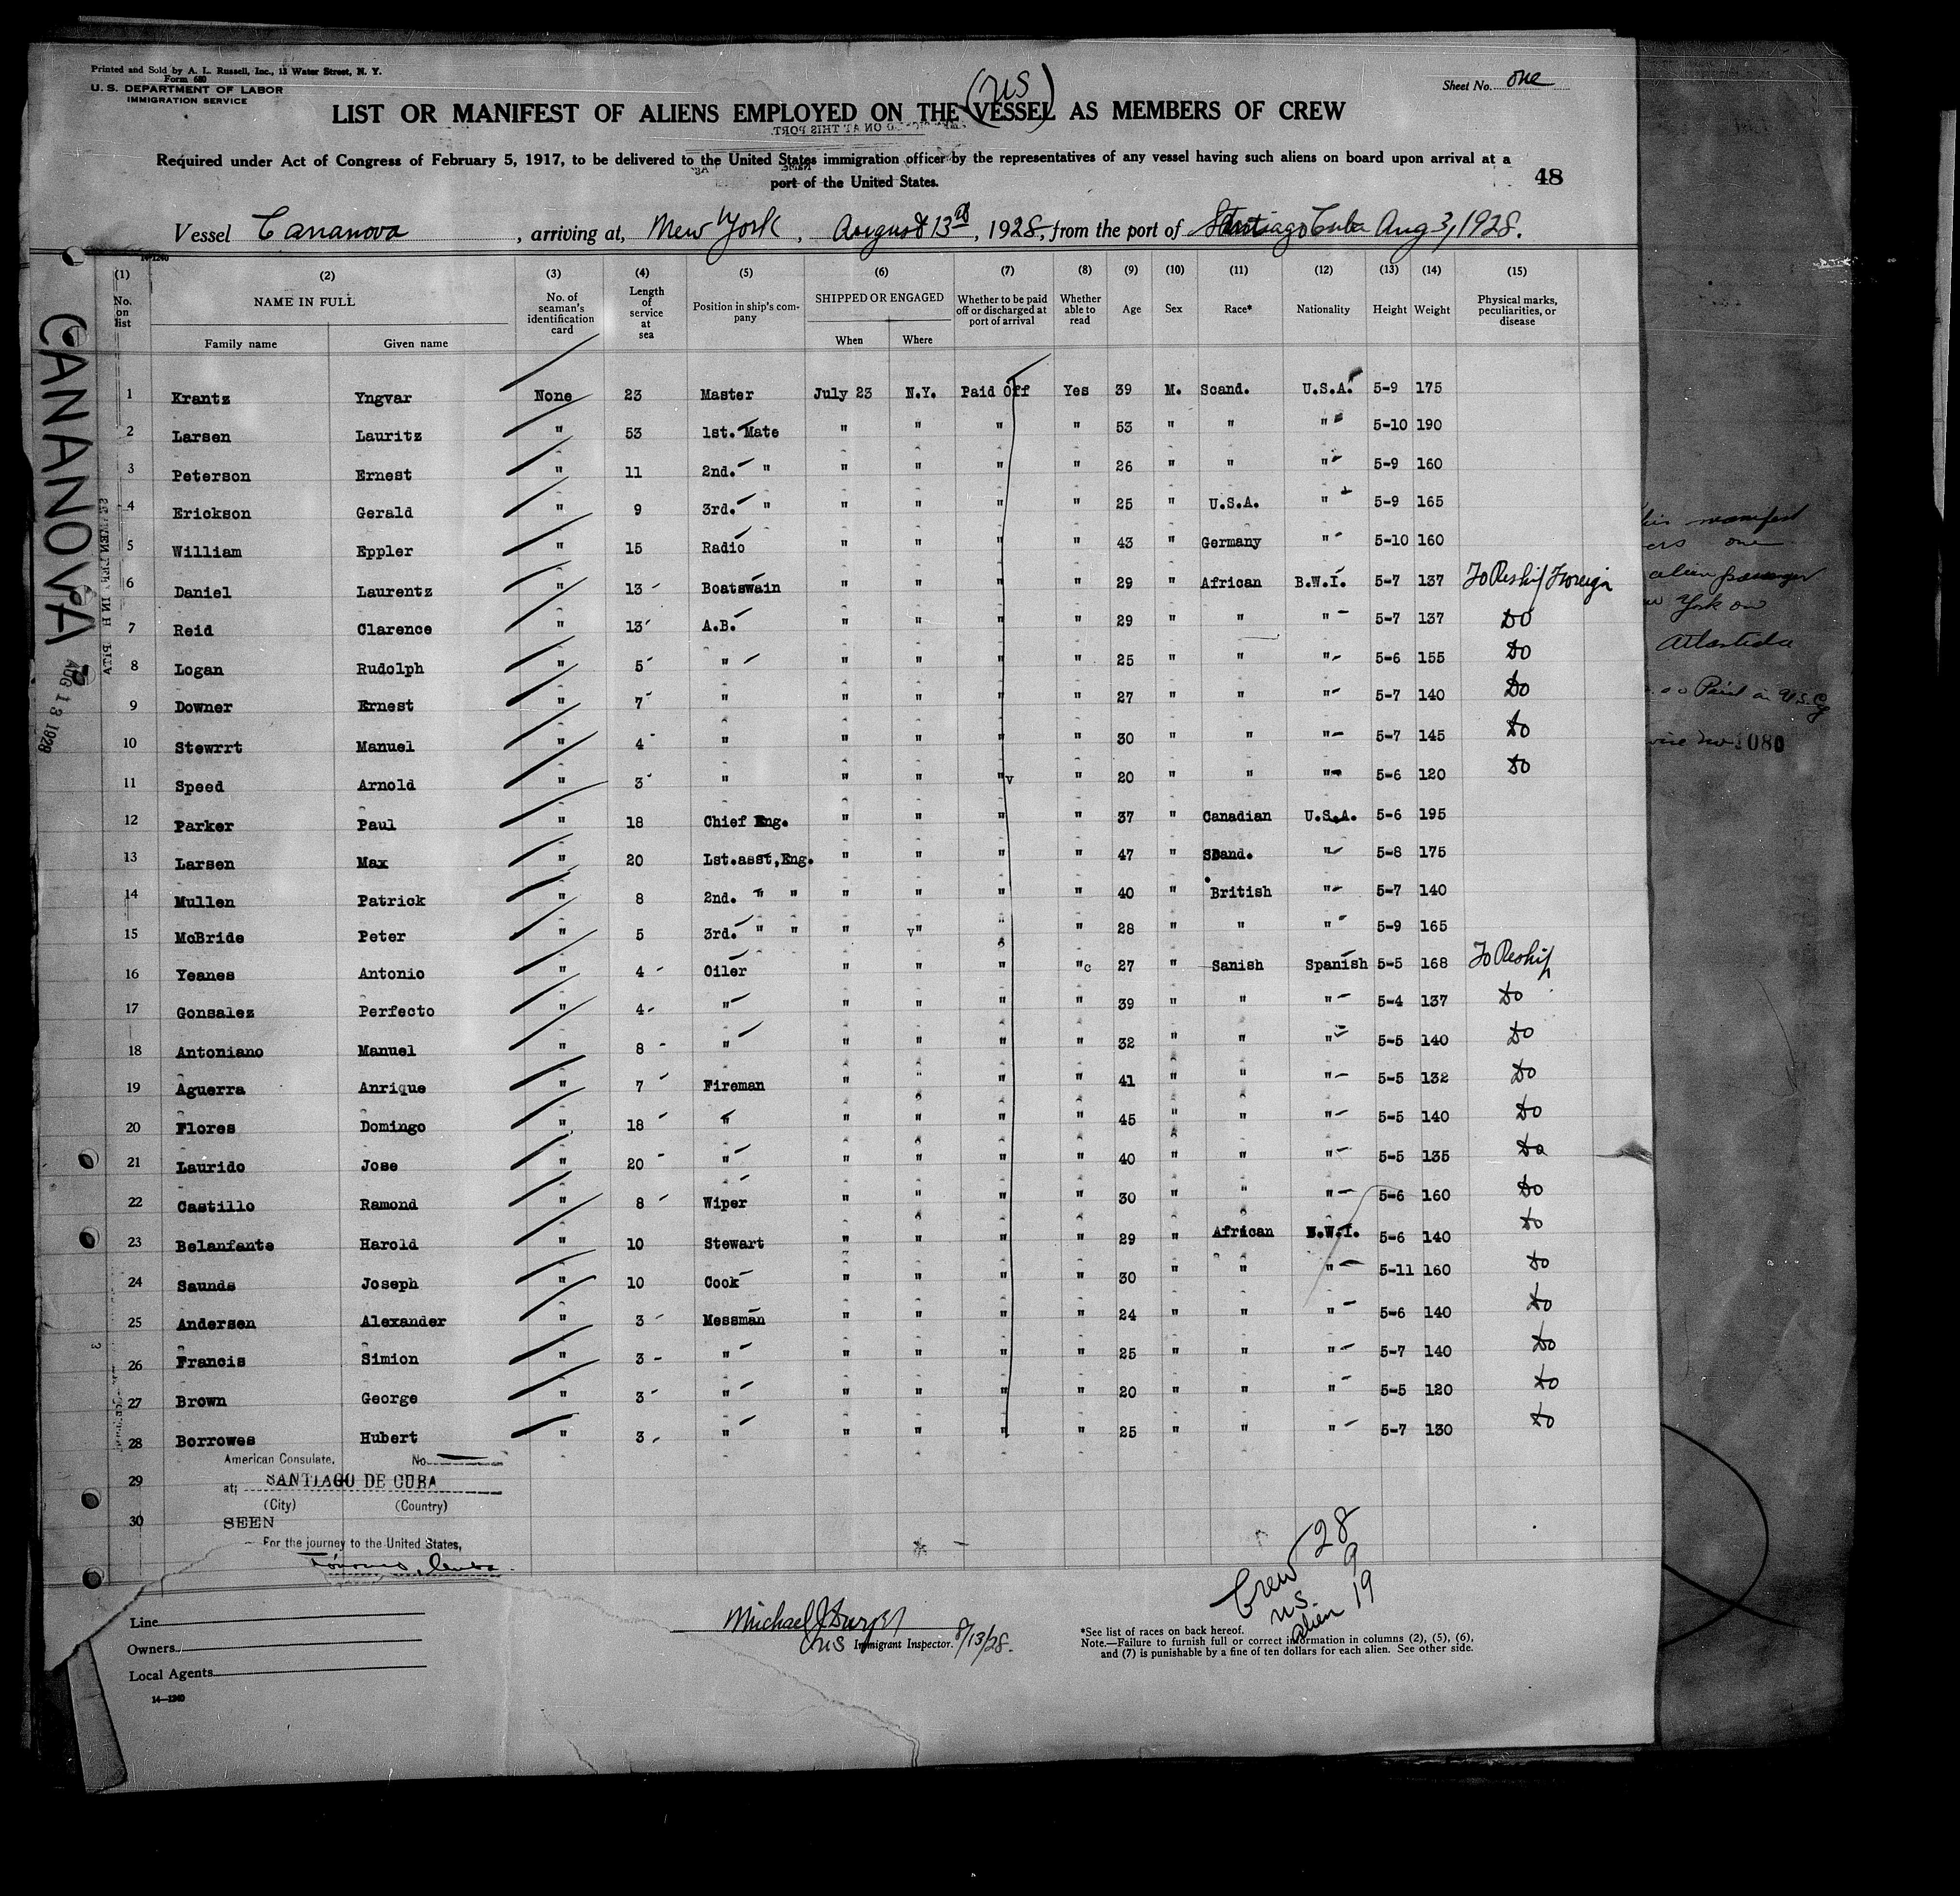 Printed and Sold by A. L. Russell, Inc., 13 Water Street, N. Y.
Form 680
U. S. DEPARTMENT OF LABOR
IMMIGRATION SERVICE
Sheet No. one
(US)
LIST OR MANIFEST OF ALIENS EMPLOYED ON THE VESSEL AS MEMBERS OF CREW
Required under Act of Congress of February 5, 1917, to be delivered to the United States immigration officer by the representatives of any vessel having such aliens on board upon arrival at a
port of the United States.
48
Vessel Cananova, arriving at, New York, August 13th, 1928, from the port of Santiago Cuba Aug 3, 1928.
14-1240
(1) (2) (3) (4) (5) (6) (7) (8) (9) (10) (11) (12) (13) (14) (15)
No. on list NAME IN FULL Family name Given name No. of seaman's identification card Length of service at sea Position in ship's company SHIPPED OR ENGAGED When Where Whether to be paid off or discharged at port of arrival Whether able to read Age Sex Race* Nationality Height Weight Physical marks, peculiarities, or disease
1 Krantz Yngvar None 23 Master July 23 N.Y. Paid Off Yes 39 M. Scand. U.S.A. 5-9 175
2 Larsen Lauritz " 53 1st. Mate " " " " 53 " " " 5-10 190
3 Peterson Ernest " 11 2nd. " " " " " 26 " " " 5-9 160
4 Erickson Gerald " 9 3rd. " " " " " 25 " U.S.A. " 5-9 165
5 William Eppler " 15 Radio " " " " 43 " Germany " 5-10 160
6 Daniel Laurentz " 13 Boatswain " " " " 29 " African B.W.I. 5-7 137 To Reship Foreign
7 Reid Clarence " 13 A.B. " " " " 29 " " " 5-7 137 Do
8 Logan Rudolph " 5 " " " " " 25 " " " 5-6 155 Do
9 Downer Ernest " 7 " " " " " 27 " " " 5-7 140 Do
10 Stewrrt Manuel " 4 " " " " " 30 " " " 5-7 145 Do
11 Speed Arnold " 3 " " " "v " 20 " " " 5-6 120 Do
12 Parker Paul " 18 Chief Eng. " " " " 37 " Canadian U.S.A. 5-6 195
13 Larsen Max " 20 1st.asst,Eng. " " " " 47 " Scand. " 5-8 175
14 Mullen Patrick " 8 2nd. " " " " " " 40 " British " 5-7 140
15 McBride Peter " 5 3rd. " " " v" " " 28 " " " 5-9 165
16 Yeanes Antonio " 4 Oiler " " " "c 27 " Sanish Spanish 5-5 168 To Reship
17 Gonsalez Perfecto " 4 " " " " " 39 " " " 5-4 137 Do
18 Antoniano Manuel " 8 " " " " " 32 " " " 5-5 140 Do
19 Aguerra Anrique " 7 Fireman " " " " 41 " " " 5-5 132 Do
20 Flores Domingo " 18 " " " " " 45 " " " 5-5 140 Do
21 Laurido Jose " 20 " " " " " 40 " " " 5-5 135 Do
22 Castillo Ramond " 8 Wiper " " " " 30 " " " 5-6 160 Do
23 Belanfante Harold " 10 Stewart " " " " 29 " African B.W.I. 5-6 140 Do
24 Saunds Joseph " 10 Cook " " " " 30 " " " 5-11 160 Do
25 Andersen Alexander " 3 Messman " " " " 24 " " " 5-6 140 Do
26 Francis Simion " 3 " " " " " 25 " " " 5-7 140 Do
27 Brown George " 3 " " " " " 20 " " " 5-5 120 Do
28 Borrowes Hubert " 3 " " " " " 25 " " " 5-7 130 Do
29
30
American Consulate. No.
at; SANTIAGO DE CUBA
(City) (Country)
SEEN
For the journey to the United States,
Crew 28
US. 9
alien 19
Line
Owners
Local Agents
14-1240
Michael J
US Immigrant Inspector. 8/13/28.
*See list of races on back hereof.
Note.—Failure to furnish full or correct information in columns (2), (5), (6),
and (7) is punishable by a fine of ten dollars for each alien. See other side.
CANANOVA
AUG 13 1928
manifest
one
alien passenger
York on
Atlantida
Paid in U.S.
no 1080